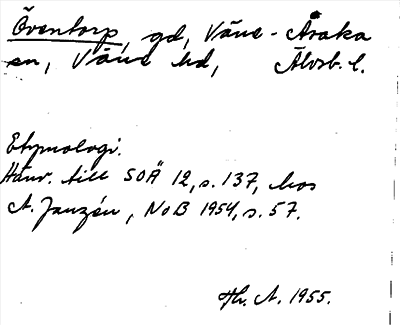 Öventorp, gd, Väne-Åsaka
sn, Väne hd, Älvsb. l.
Etymologi.
Hänv. till SOÄ 12, s. 137, hos
A. Janzén, NoB 1954, s. 57.
Hr. A. 1955.